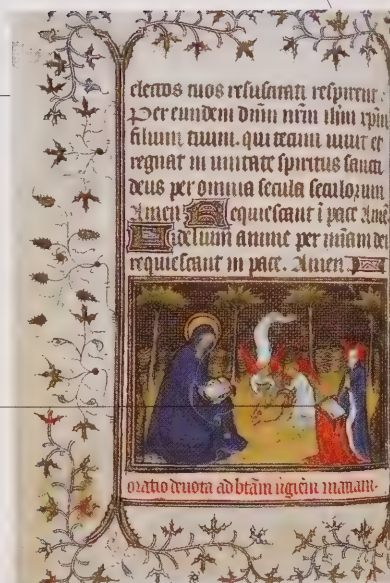 electos tuos resuscitati respirent.
Per eundem dnm nrm ihm xpm
filium tuum. qui tecum uiuit et
regnat in unitate spiritus sancti
deus per omnia secula seculorum
Amen Requiescant ī pace Amē
Fidelium anime per miam dei
requiescant in pace. Amen
oratio deuota ad btām uīgiēm mariam.